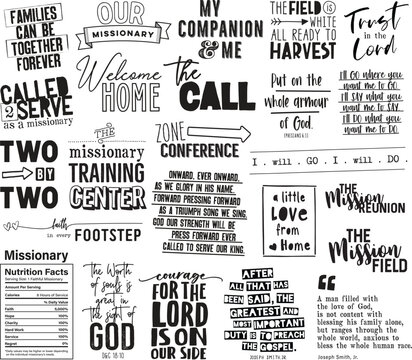 FAMILIES
CAN BE
TOGETHER
FOREVER
OUR
MISSIONARY
MY
COMPANION
& ME
THE FIELD IS
WHITE
ALL READY TO
HARVEST
Trust
in the
Lord
CALLED
2 SERVE
as a missionary
Welcome
HOME
the
CALL
Put on the
whole armour
of God.
EPHESIANS 6:11
I'll GO where you
want me to GO.
I'll SAY what you
want me to SAY.
I'll DO what you
want me to DO.
TWO
BY
TWO
THE
missionary
TRAINING
CENTER
ZONE
CONFERENCE
I . will . GO . I . will . DO .
faith
in every
FOOTSTEP
ONWARD, EVER ONWARD,
AS WE GLORY IN HIS NAME.
FORWARD PRESSING FORWARD
AS A TRIUMPH SONG WE SING.
GOD OUR STRENGTH WILL BE
PRESS FORWARD EVER
CALLED TO SERVE OUR KING.
a little
LOVE
from
Home
THE
Mission
REUNION
THE
Mission
FIELD
Missionary
Nutrition Facts
Serving Size: 1 Faithful Missionary
Amount Per Serving
Calories
Daily Value
Faith 5,000%
Hope 100%
Charity 100%
Hard Work 100%
Service 100%
Regret 0%
The Worth
of souls is
great in
the sight of
GOD
D&C 18:10
courage
FOR THE
LORD IS
ON OUR
SIDE
AFTER
ALL THAT HAS
BEEN SAID, THE
GREATEST AND
MOST IMPORTANT
DUTY IS TO
PREACH THE
GOSPEL.
JOSEPH SMITH JR
“
A man filled with
the love of God,
is not content with
blessing his family alone,
but ranges through the
whole world, anxious to
bless the whole human race.
Joseph Smith, Jr.